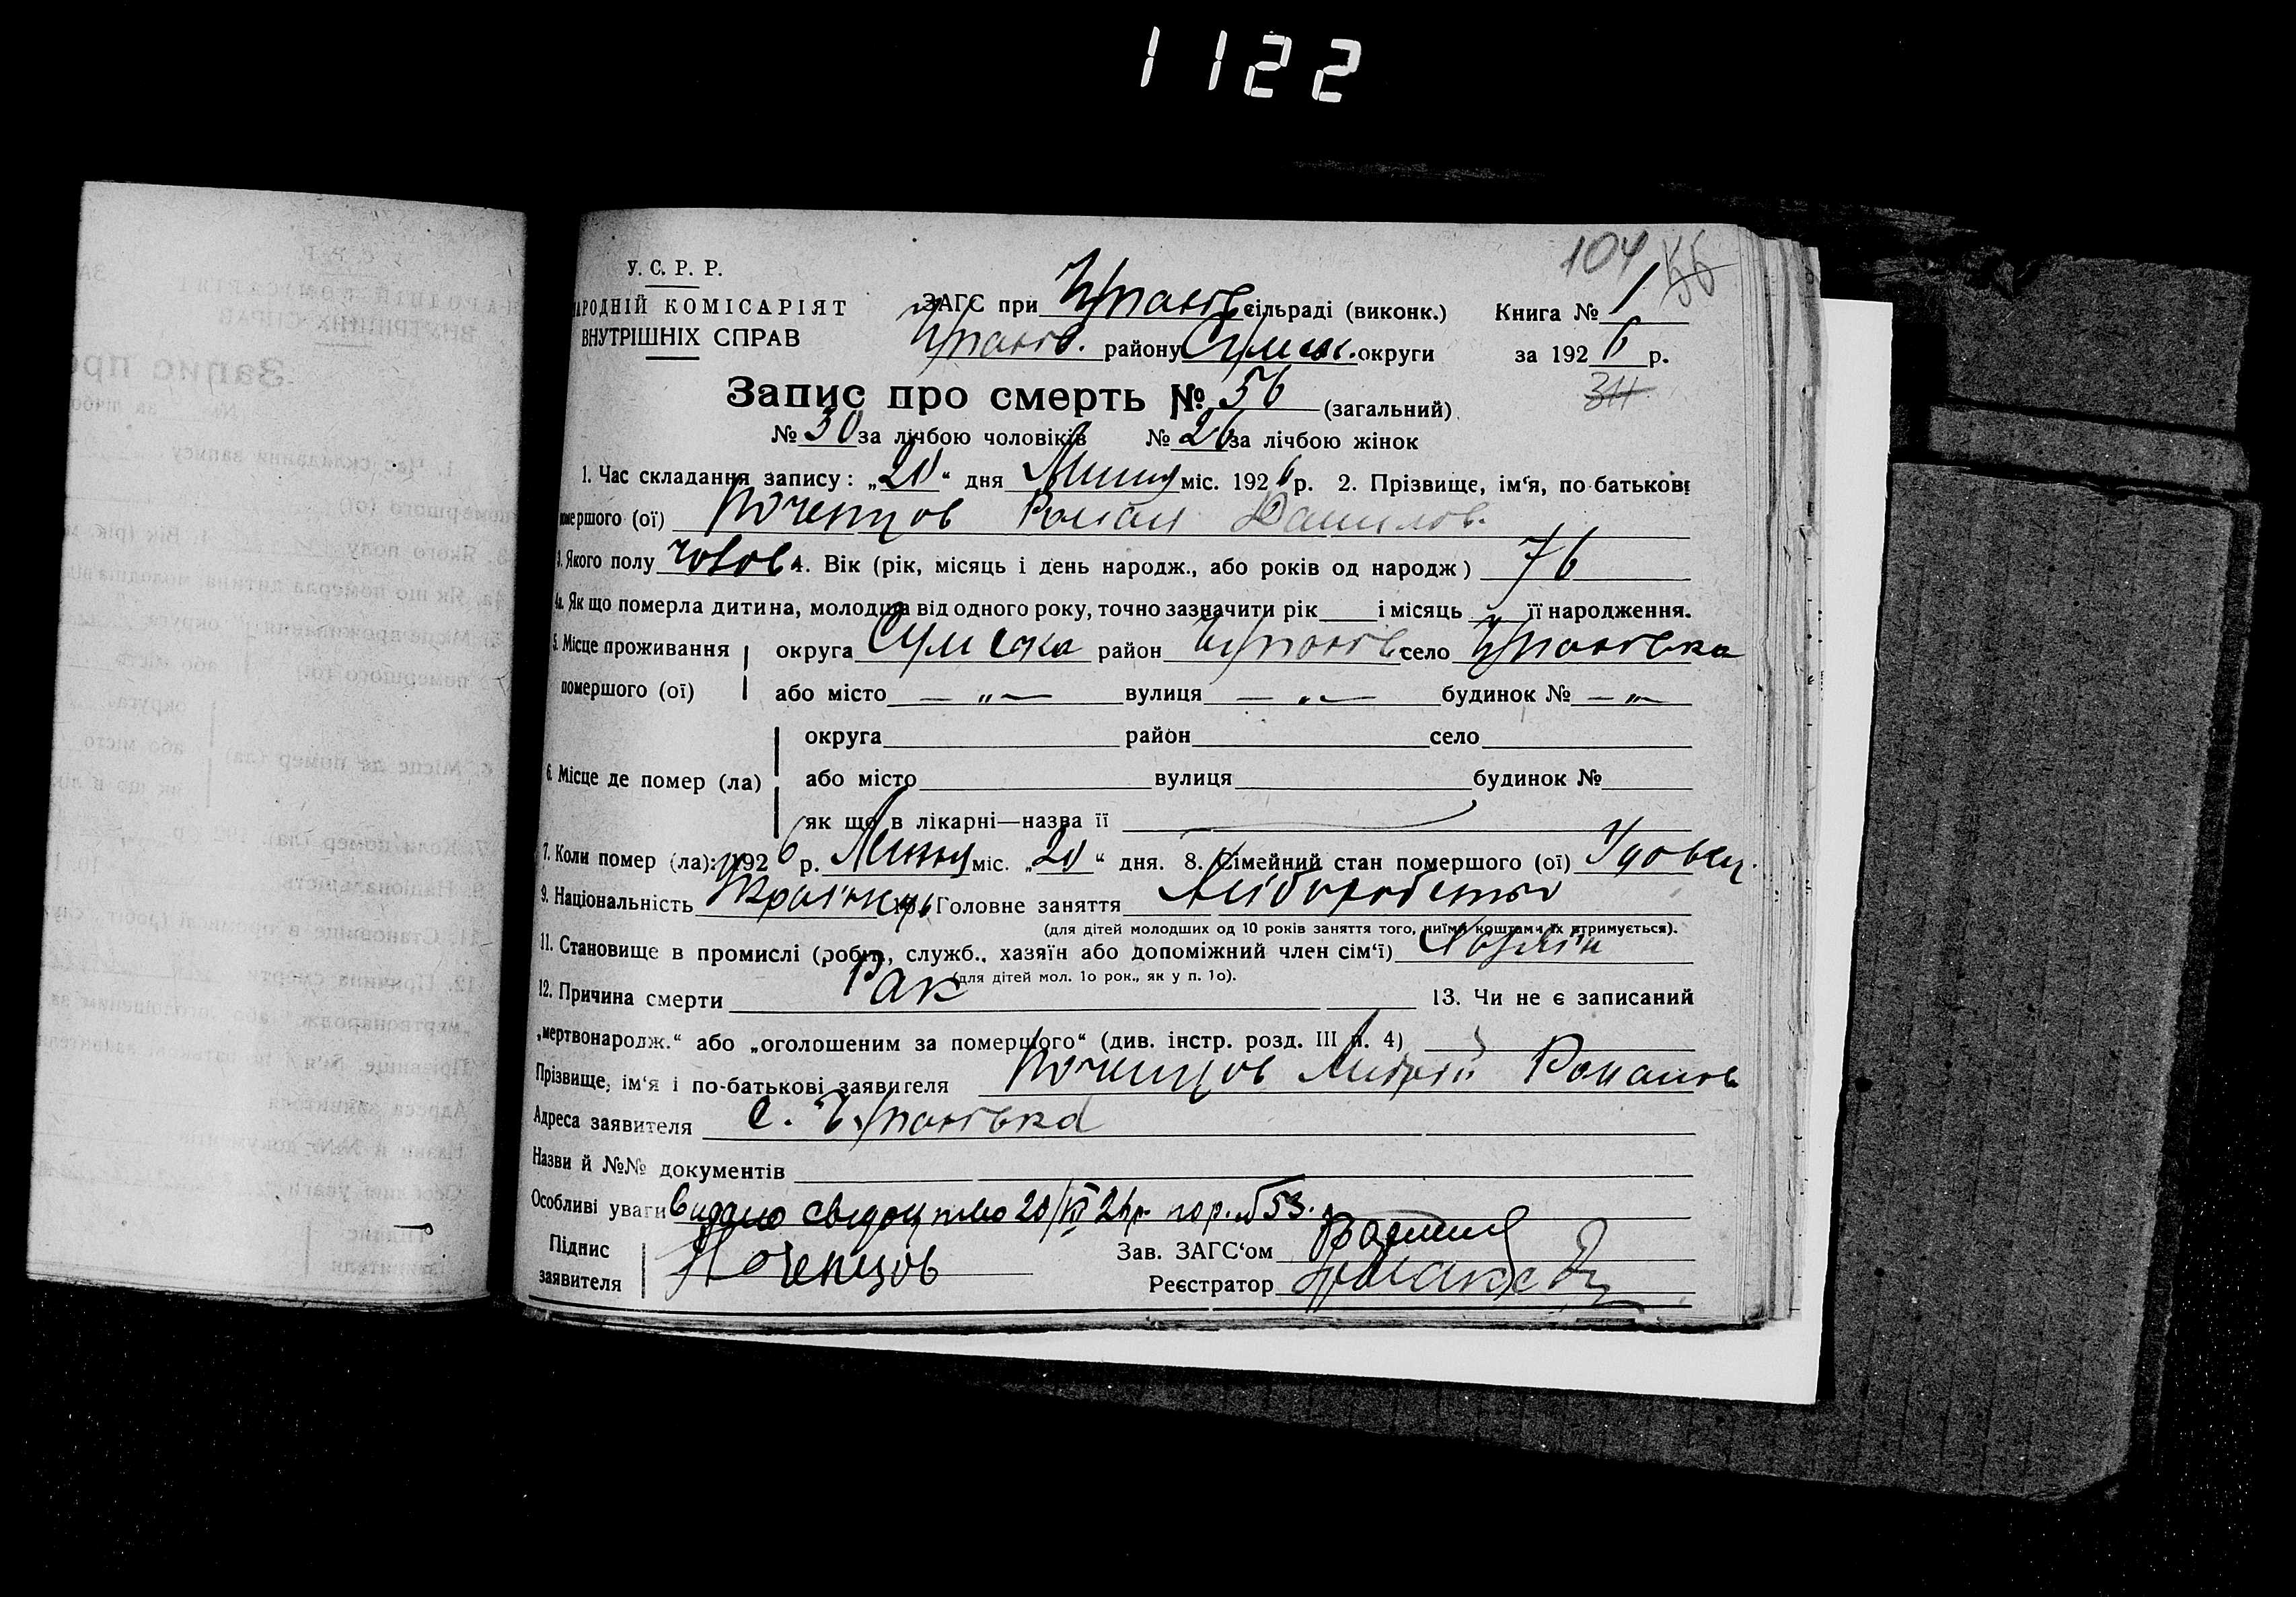 1122
104 56
У. С. Р. Р.
НАРОДНІЙ КОМІСАРІЯТ
ВНУТРІШНІХ СПРАВ
ЗАГС при Упав сільраді (виконк.) Книга № 1
району Сумськ. округи за 1926 р.
Запис про смерть № 56 (загальний)
34
№ 30 за лічбою чоловіків № 26 за лічбою жінок
1. Час складання запису: „20“ дня Липня міс. 1926 р. 2. Прізвище, ім‘я, по батькові
помершого (ої) Поченцов Роман Данилов.
3. Якого полу чолов 4. Вік (рік, місяць і день народж., або років од народж) 76
4а. Як що померла дитина, молодша від одного року, точно зазначити рік і місяць її народження.
5. Місце проживання округа Сумська район село
помершого (ої) або місто — „ — вулиця — „ — будинок № — „ —
округа район село
6. Місце де помер (ла) або місто вулиця будинок №
як що в лікарні—назва її
7. Коли помер (ла): 1926 р. Липня міс. „20“ дня. 8. Сімейний стан помершого (ої) Удовец.
9. Національність Українец 10. Головне заняття Хліборобство
(для дітей молодших од 10 років заняття того, чиїми коштами їх утримується).
11. Становище в промислі (робіт., служб., хазяїн або допоміжний член сім‘ї) Хазяїн
(для дітей мол. 1о рок., як у п. 1о).
12. Причина смерти Рак 13. Чи не є записаний
„мертвонародж.“ або „оголошеним за помершого“ (див. інстр. розд. III п. 4)
Прізвище, ім‘я і по-батькові заявителя Поченцов Романов
Адреса заявителя с.
Назви й №№ документів
Особливі уваги Видано свидоцтво 20/VII 26 р. пор. № 53.
Підпис
заявителя Поченцов
Зав. ЗАГС‘ом
Реєстратор